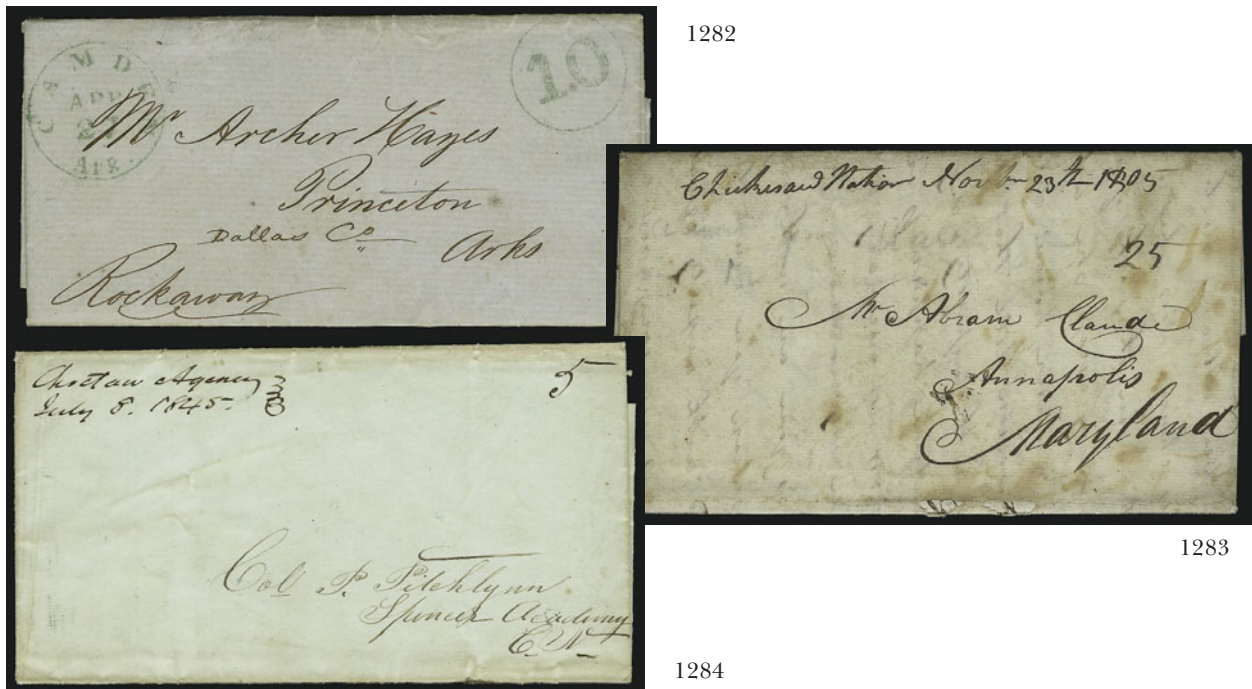 1282
CAMDEN
APR
Ark.
10
Mr Archer Hayes
Princeton
Dallas Co
Arks
Rockaway
Chickesaw Nation Novbr 23th 1805
25
Mr Abram Claude
Annapolis
Maryland
1283
Choctaw Agency
July 8. 1845.
5
Col P. Pitchlynn
Spencer Academy
C. N.
1284